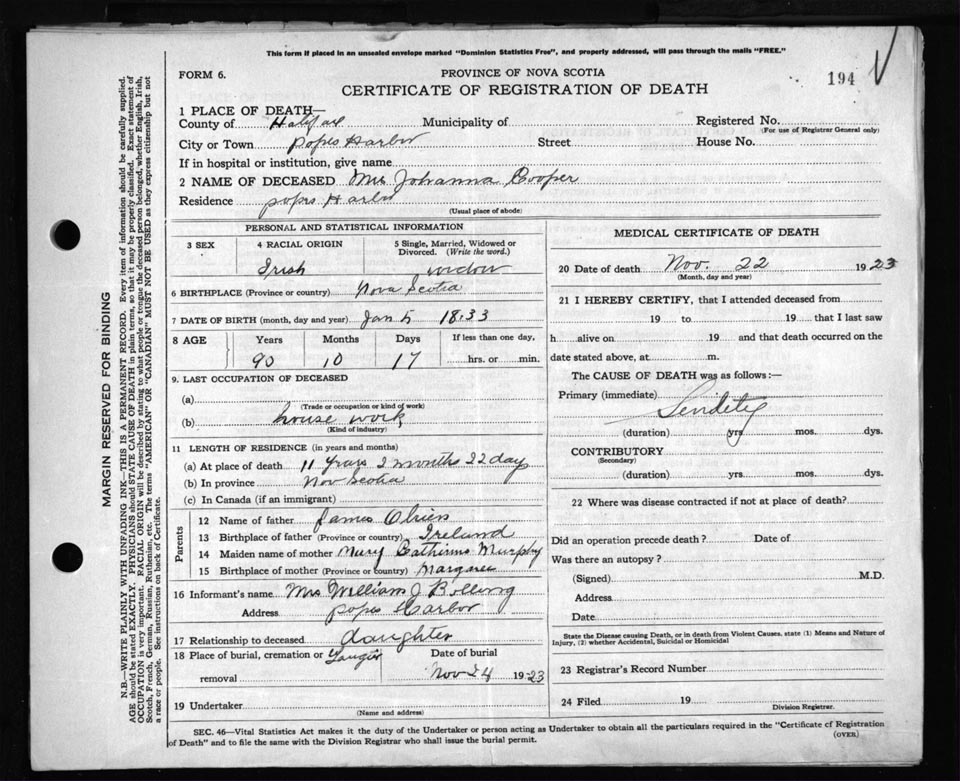 This form if placed in an unsealed envelope marked "Dominion Statistics Free", and properly addressed, will pass through the mails "FREE."
FORM 6.
PROVINCE OF NOVA SCOTIA
194
CERTIFICATE OF REGISTRATION OF DEATH
1 PLACE OF DEATH—
County of Halifax Municipality of Registered No.
(For use of Registrar General only)
City or Town Popes Harbor Street House No.
If in hospital or institution, give name
2 NAME OF DECEASED Mrs Johanna Cooper
Residence popes Harbor
(Usual place of abode)
PERSONAL AND STATISTICAL INFORMATION
3 SEX
4 RACIAL ORIGIN
5 Single, Married, Widowed or Divorced. (Write the word.)
Irish widow
6 BIRTHPLACE (Province or country) Nova Scotia
7 DATE OF BIRTH (month, day and year) Jan 5 1833
8 AGE Years Months Days If less than one day,
90 10 17 hrs. or min.
9. LAST OCCUPATION OF DECEASED
(a)
(Trade or occupation or kind of work)
(b) house work
(Kind of industry)
11 LENGTH OF RESIDENCE (in years and months)
(a) At place of death 11 years 2 months 22 day
(b) In province Nov Scotia
(c) In Canada (if an immigrant)
Parents
12 Name of father James Obrien
13 Birthplace of father (Province or country) Ireland
14 Maiden name of mother Mary Catherine Murphy
15 Birthplace of mother (Province or country) Margaree
16 Informant's name Mrs William J Bolling
Address popes Harbor
17 Relationship to deceased daughter
18 Place of burial, cremation or removal Tangier
Date of burial
Nov 24 1923
19 Undertaker
(Name and address)
MEDICAL CERTIFICATE OF DEATH
20 Date of death Nov. 22 1923
(Month, day and year)
21 I HEREBY CERTIFY, that I attended deceased from
19 to 19 that I last saw
h alive on 19 and that death occurred on the
date stated above, at m.
The CAUSE OF DEATH was as follows:—
Primary (immediate)
(duration) yrs. mos. dys.
CONTRIBUTORY
(Secondary)
(duration) yrs. mos. dys.
22 Where was disease contracted if not at place of death?
Did an operation precede death? Date of
Was there an autopsy?
(Signed) M.D.
Address
Date
State the Disease causing Death, or in death from Violent Causes, state (1) Means and Nature of
Injury, (2) whether Accidental, Suicidal or Homicidal
23 Registrar's Record Number
24 Filed 19
Division Registrar.
SEC. 46—Vital Statistics Act makes it the duty of the Undertaker or person acting as Undertaker to obtain all the particulars required in the "Certificate of Registration
of Death" and to file the same with the Division Registrar who shall issue the burial permit.
(OVER)
MARGIN RESERVED FOR BINDING
N.B.—WRITE PLAINLY WITH UNFADING INK—THIS IS A PERMANENT RECORD. Every item of information should be carefully supplied.
AGE should be stated EXACTLY. PHYSICIANS should STATE CAUSE OF DEATH in plain terms, so that it may be properly classified. Exact statement of
OCCUPATION is very important. RACIAL ORIGIN will be described by stating to what people or tongue the deceased person belonged, whether English, Irish,
Scotch, French, German, Russian, Ruthenian, etc. The terms "AMERICAN" OR "CANADIAN" MUST NOT BE USED as they express citizenship but not
a race or people. See instructions on back of Certificate.